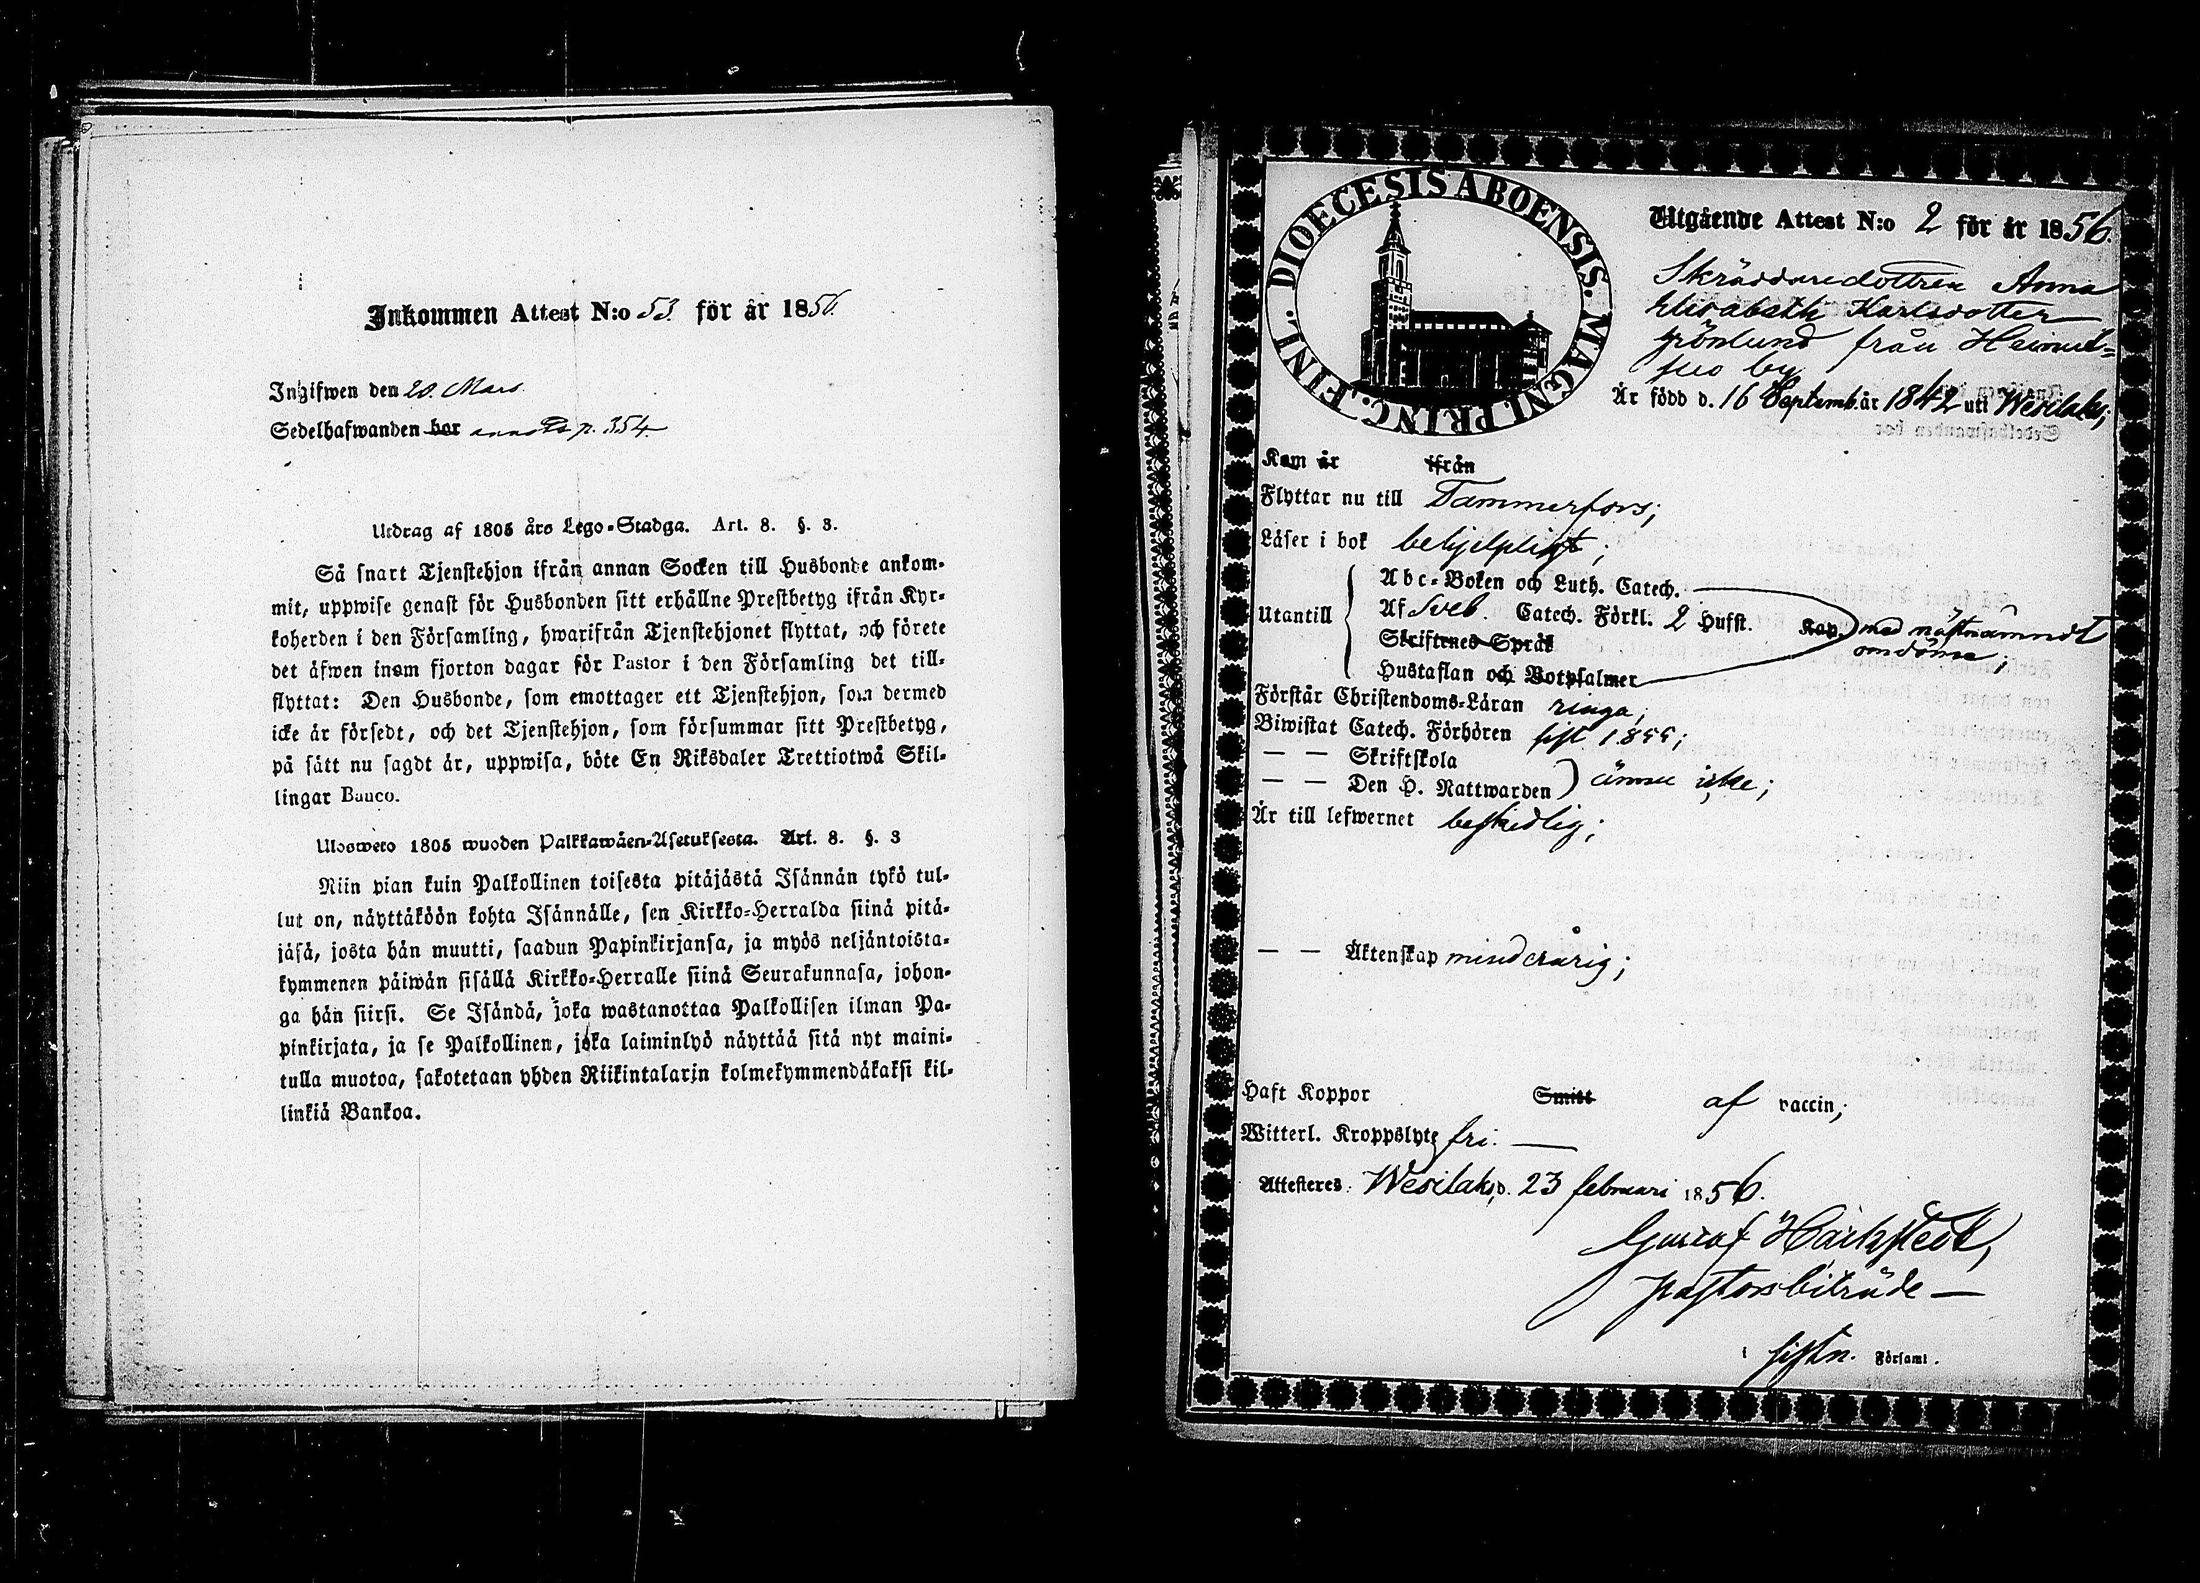 Inkommen Attest N:o 53. för år 1856.
Ingifwen den 20. Mars.
Sedelhafwanden bor annot. p. 354.
Utdrag af 1805 års Lego-Stadga. Art. 8. §. 3.
Så snart Tjenstehjon ifrån annan Socken till Husbonde ankom-
mit, uppwise genast för Husbonden sitt erhållne Prestbetyg ifrån Kyr-
koherden i den Församling, hwarifrån Tjenstehjonet flyttat, och förete
det äfwen inom fjorton dagar för Pastor i den Församling det till-
flyttat: Den Husbonde, som emottager ett Tjenstehjon, som dermed
icke är försedt, och det Tjenstehjon, som försummar sitt Prestbetyg,
på sätt nu sagdt är, uppwisa, böte En Riksdaler Trettiotwå Skil-
lingar Banco.
Ulosweto 1805 wuoden Palkkawäen-Asetuksesta. Art. 8. §. 3
Niin pian kuin Palkollinen toisesta pitäjästä Isännän tykö tul-
lut on, näyttäköön kohta Isännälle, sen Kirkko-Herralda siinä pitä-
jäsä, josta hän muutti, saadun Papinkirjansa, ja myös neljäntoista-
kymmenen päiwän sisällä Kirkko-Herralle siinä Seurakunnasa, johon-
ga hän siirsi. Se Isändä, joka wastanottaa Palkollisen ilman Pa-
pinkirjata, ja se Palkollinen, joka laiminlyö näyttää sitä nyt maini-
tulla muotoa, sakotetaan yhden Riikintalarin kolmekymmendäkaksi kil-
linkiä Bankoa.
DIOECESIS ABOENSIS. MAGNI. PRINC. FINL.
Utgående Attest N:o 2 för år 1856.
Skräddaredottren Anna
Elisabeth Karlsdotter
Grönlund från
by
Är född d. 16 Septemb. år 1842 uti Wesilaks;
Kom år ifrån
Flyttar nu till Tammerfors;
Läser i bok behjelpligt;
Abc-Boken och Luth. Catech.
Utantill Af Sveb. Catech. Förkl. 2 Hufst. Kap. med nästnämndt
Skriftenes Språk omdöme;
Hustaflan och Botpsalmer
Förstår Christendoms-Läran ringa;
Biwistat Catech. Förhören sist 1855;
— — Skriftskola
— — Den H. Nattwarden ) ännu icke;
Är till lefwernet beskedlig;
— — Äktenskap minderårig;
Haft Koppor Smitt af vaccin;
Witterl. Kroppslyte fri. —
Attesteres: Wesilaks, d. 23 februari 1856.
Gustaf
pastorsbiträde —
i sistn. Församl.